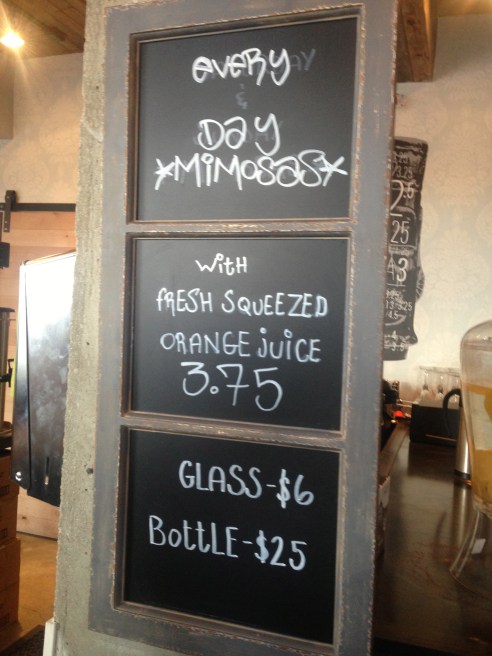 every
Day
*MiMosas*
with
FRESH SQUEEZED
ORANGE JUiCE
3.75
GLASS-$6
BottLE-$25